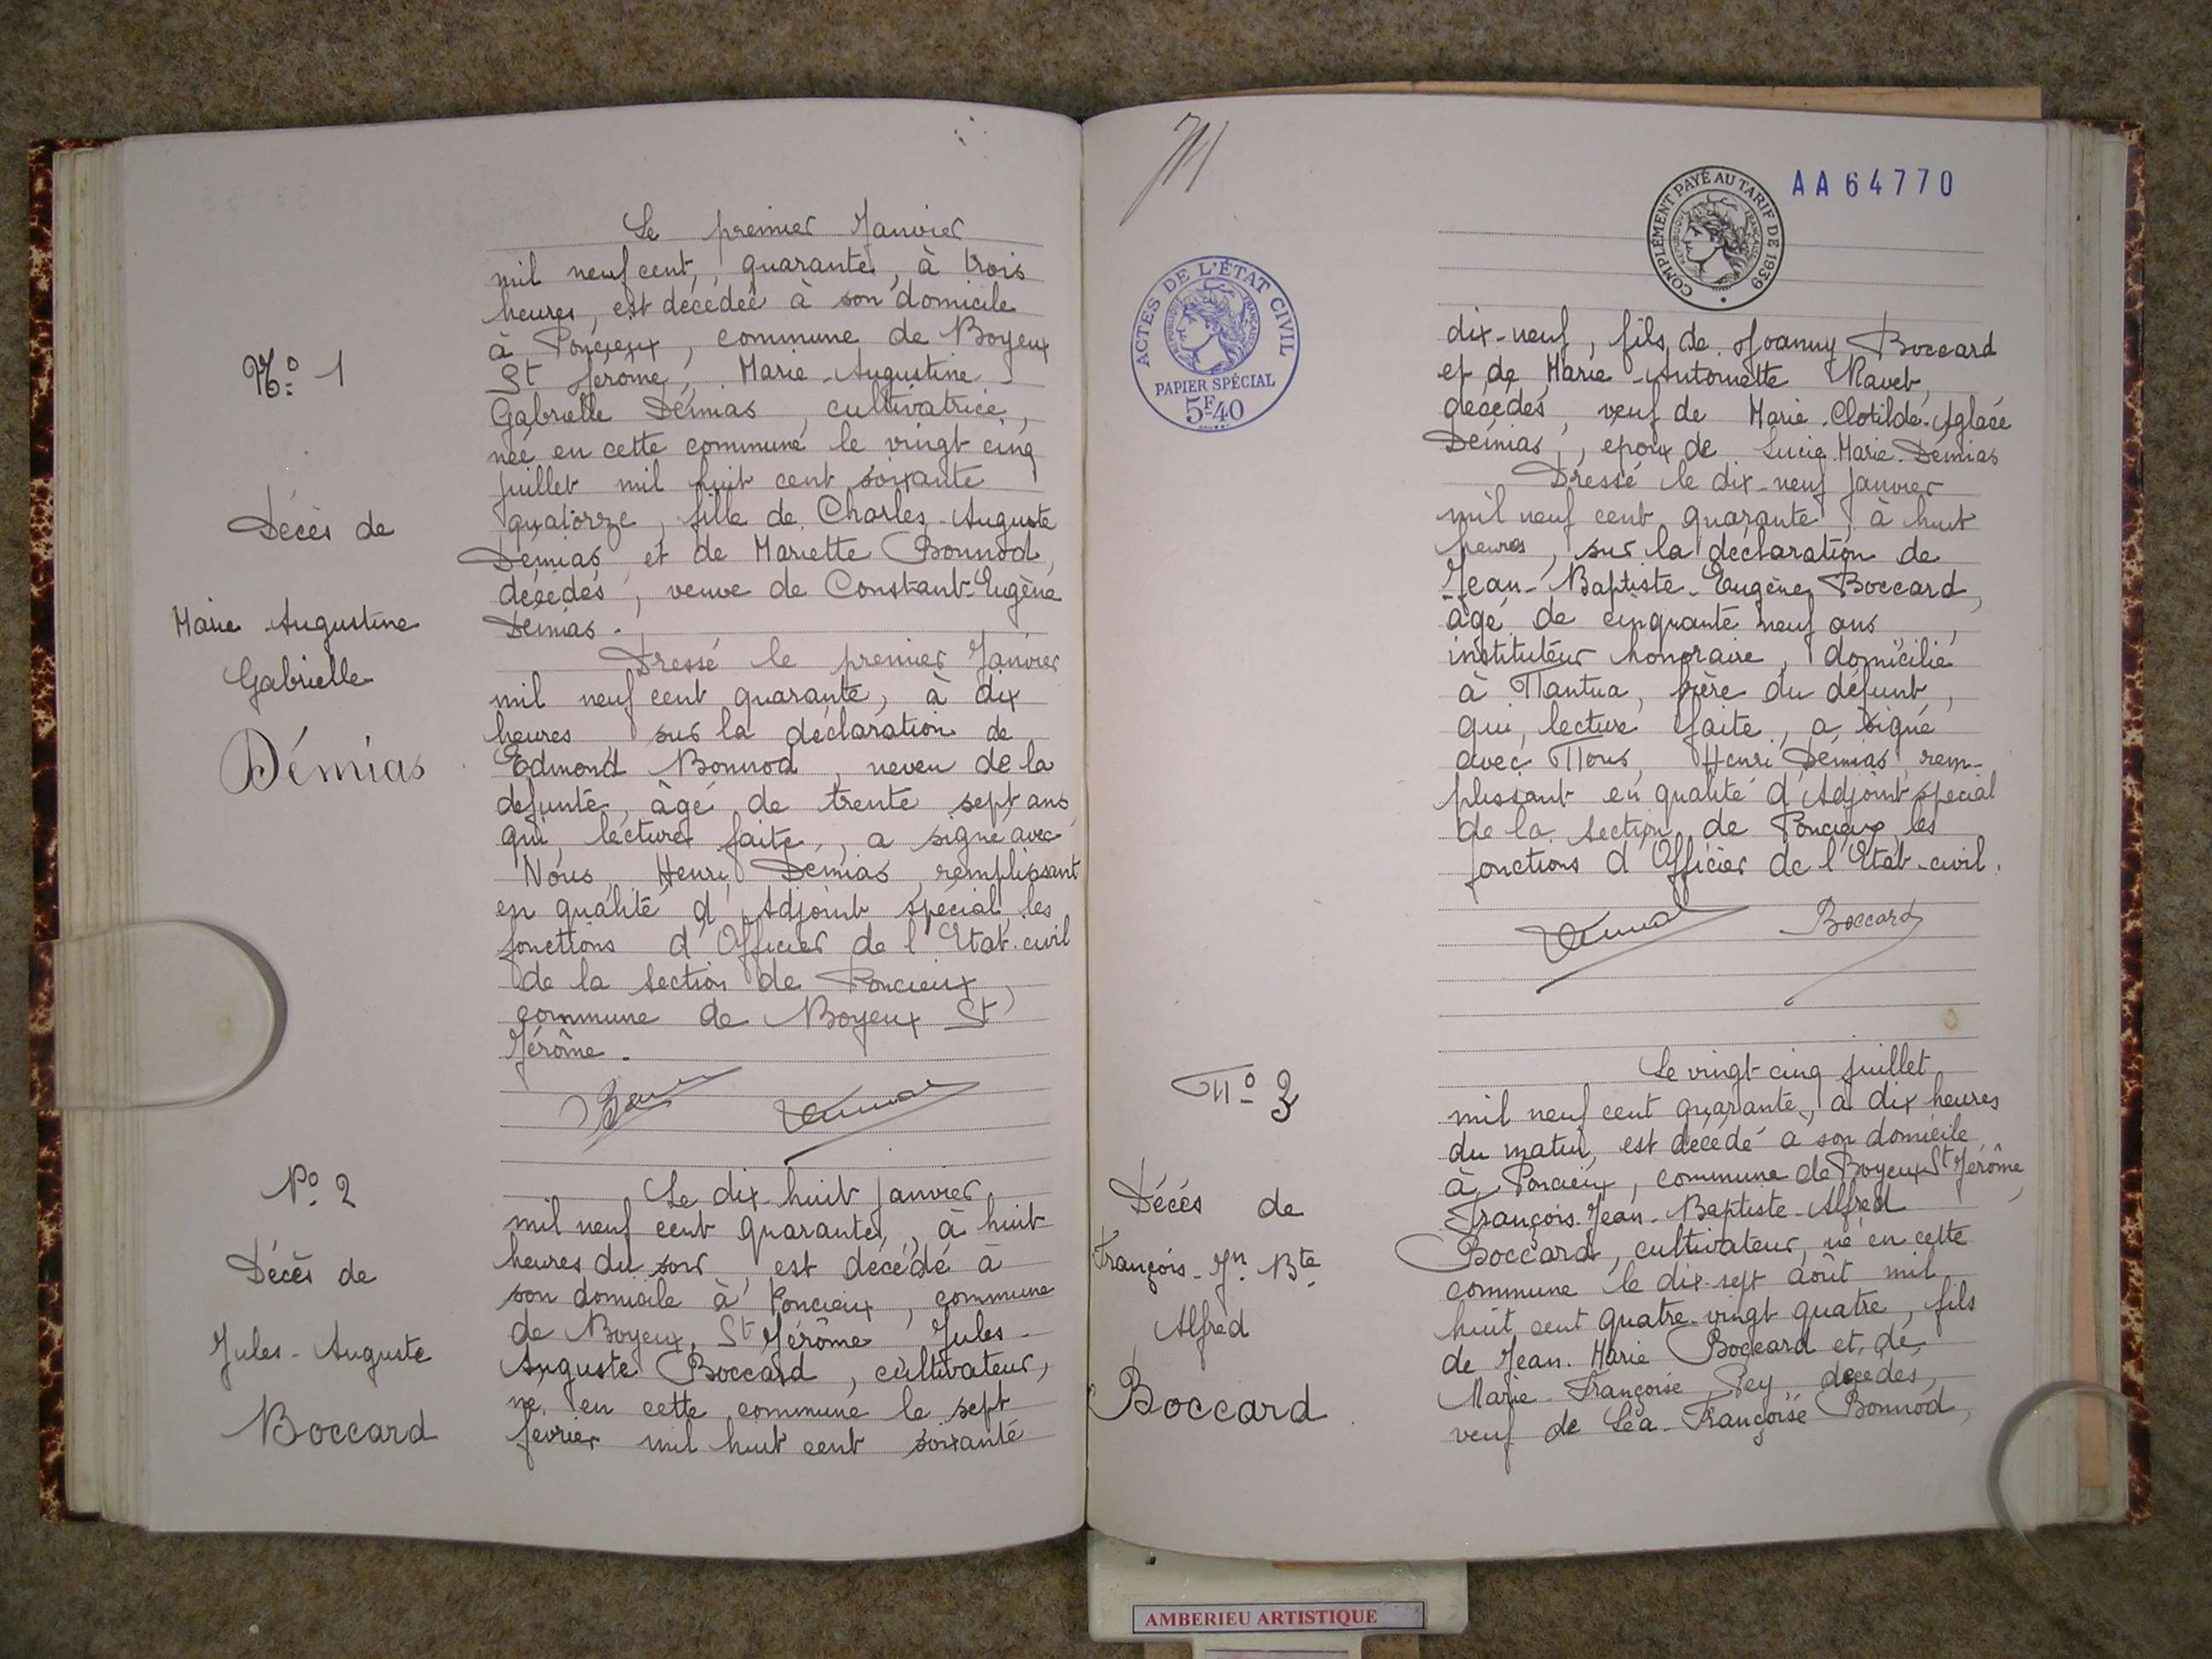 N° 1
Décès de
Marie Augustine
Gabrielle
Démias
Le premier Janvier
mil neuf cent, quarante, à trois
heures, est décédée à son domicile
à Poncieux, commune de Boyeux
St Jérôme, Marie-Augustine-
Gabrielle Démias, cultivatrice,
née en cette commune le vingt cinq
juillet mil huit cent soixante
quatorze, fille de Charles-Auguste
Démias et de Mariette Bonnod,
décédés, veuve de Constant-Eugène
Démias.
Dressé le premier Janvier
mil neuf cent quarante, à dix
heures sur la déclaration de
Edmond Bonnod, neveu de la
defunte, âgé de trente sept ans
qui, lecture faite, a signé avec
Nous, Henri Démias, remplissant
en qualité d'Adjoint spécial les
fonctions d'Officier de l'Etat-civil
de la section de Poncieux,
commune de Boyeux St
Jérôme.
N° 2
Décès de
Jules-Auguste
Boccard
Le dix-huit janvier
mil neuf cent quarante, à huit
heures du soir, est décédé à
son domicile à Poncieux, commune
de Boyeux St Jérôme Jules-
Auguste Boccard, cultivateur,
né en cette commune le sept
février mil huit cent soixante
AA64770
COMPLÉMENT PAYÉ AU TARIF DE 1939
REPUBLIQUE FRANÇAISE
ACTES DE L'ÉTAT CIVIL
REPUBLIQUE FRANÇAISE
PAPIER SPÉCIAL
5F40
dix-neuf, fils de Joanny Boccard
et de Marie-Antoinette Ravet,
décédés, veuf de Marie-Clotilde-Aglaée
Démias, époux de Lucie Marie Démias
Dressé le dix-neuf janvier
mil neuf cent quarante, à huit
heures, sur la déclaration de
Jean-Baptiste-Eugène Boccard,
âgé de cinquante neuf ans,
instituteur honoraire, domicilié
à Nantua, frère du défunt,
qui, lecture faite, a signé
avec Nous, Henri Démias, rem-
plissant en qualité d'Adjoint spécial
de la section de Poncieux les
fonctions d'Officier de l'Etat-civil.
Boccard
N° 3
Décés de
François-Jn Bte
Alfred
Boccard
Le vingt-cinq juillet
mil neuf cent quarante, à dix heures
du matin, est décédé à son domicile
à Poncieux, commune de Boyeux St Jérôme,
François-Jean-Baptiste-Alfred
Boccard, cultivateur, né en cette
commune le dix-sept août mil
huit cent quatre-vingt quatre, fils
de Jean-Marie Boccard et de
Marie-Françoise Pey décédés,
veuf de Léa-Françoise Bonnod,
AMBERIEU ARTISTIQUE